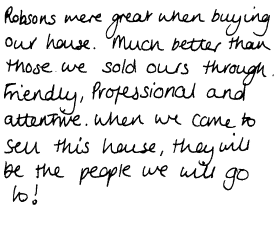 Robsons were great when buying
our house. Much better than
those we sold ours through.
Friendly, Professional and
attentive. When we come to
sell this house, they will
be the people we will go
to!